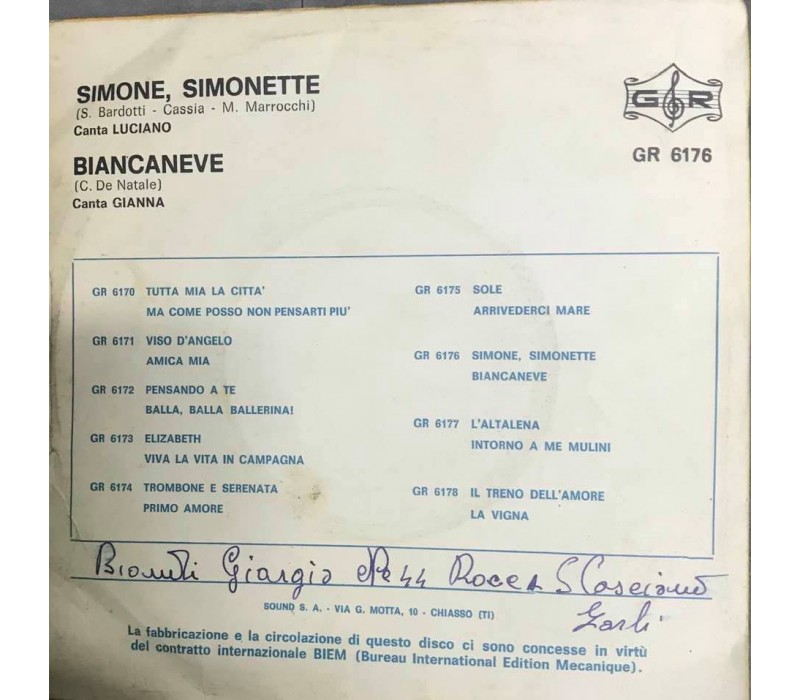 SIMONE, SIMONETTE
(S. Bardotti - Cassia - M. Marrocchi)
Canta LUCIANO
BIANCANEVE
(C. De Natale)
Canta GIANNA
G R
GR 6176
GR 6170 TUTTA MIA LA CITTA'
MA COME POSSO NON PENSARTI PIU'
GR 6171 VISO D'ANGELO
AMICA MIA
GR 6172 PENSANDO A TE
BALLA, BALLA BALLERINA!
GR 6173 ELIZABETH
VIVA LA VITA IN CAMPAGNA
GR 6174 TROMBONE E SERENATA
PRIMO AMORE
GR 6175 SOLE
ARRIVEDERCI MARE
GR 6176 SIMONE, SIMONETTE
BIANCANEVE
GR 6177 L'ALTALENA
INTORNO A ME MULINI
GR 6178 IL TRENO DELL'AMORE
LA VIGNA
Giorgio 44 Rocca S
SOUND S. A. - VIA G. MOTTA, 10 - CHIASSO (TI)
La fabbricazione e la circolazione di questo disco ci sono concesse in virtù
del contratto internazionale BIEM (Bureau International Edition Mecanique).